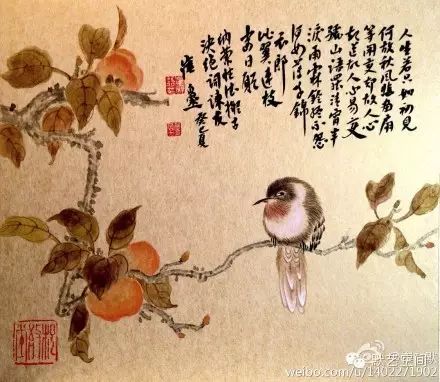 人生若只如初見
何故秋風悲画扇
等闲变却故人心
却道故人心易变
骊山語罢清宵半
淚雨霖鈴終不怨
何如薄幸錦
衣郎
比翼連枝
当日願
纳兰性德擬古
决绝词谏友
癸巳夏
默艺空间
weibo.com/u/1402271902